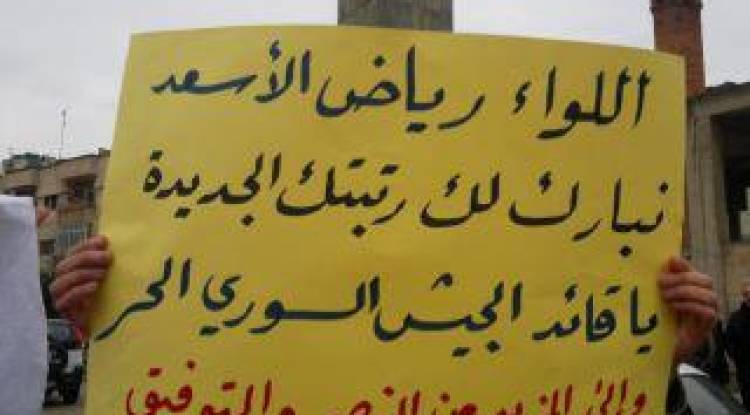 اللواء رياض الأسعد
نبارك لك رتبتك الجديدة
يا قائد الجيش السوري الحر
والى المزيد من النصر والتوفيق